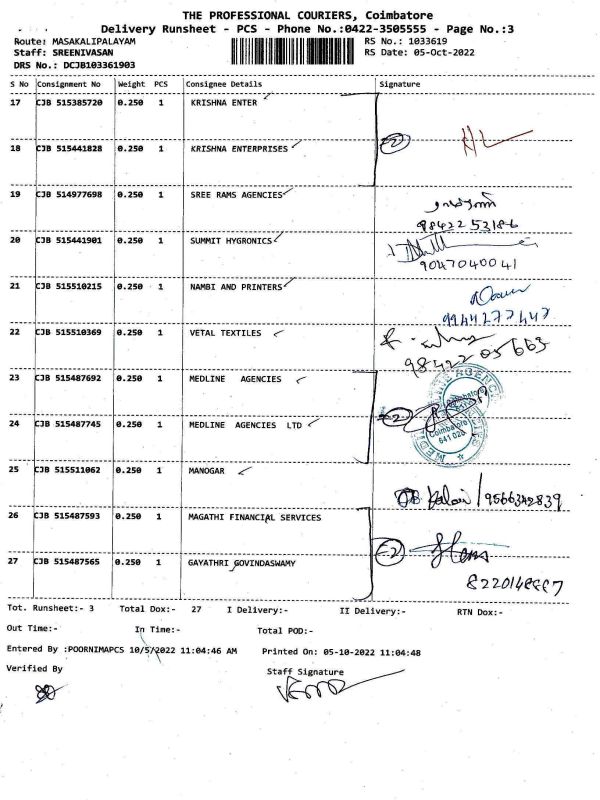 THE PROFESSIONAL COURIERS, Coimbatore
Delivery Runsheet - PCS - Phone No.:0422-3505555 - Page No.:3
Route: MASAKALIPALAYAM
RS No.: 1033619
Staff: SREENIVASAN
RS Date: 05-Oct-2022
DRS No.: DCJB103361903
S No Consignment No Weight PCS Consignee Details Signature
17 CJB 515385720 0.250 1 KRISHNA ENTER
18 CJB 515441828 0.250 1 KRISHNA ENTERPRISES
19 CJB 514977698 0.250 1 SREE RAMS AGENCIES
98422 53186
20 CJB 515441901 0.250 1 SUMMIT HYGRONICS
9047040041
21 CJB 515510215 0.250 1 NAMBI AND PRINTERS
22 CJB 515510369 0.250 1 VETAL TEXTILES
98422 05663
23 CJB 515487692 0.250 1 MEDLINE AGENCIES
24 CJB 515487745 0.250 1 MEDLINE AGENCIES LTD
Coimbatore
641 020
25 CJB 515511062 0.250 1 MANOGAR
9566342839
26 CJB 515487593 0.250 1 MAGATHI FINANCIAL SERVICES
27 CJB 515487565 0.250 1 GAYATHRI GOVINDASWAMY
Tot. Runsheet:- 3 Total Dox:- 27 I Delivery:- II Delivery:- RTN Dox:-
Out Time:- In Time:- Total POD:-
Entered By :POORNIMAPCS 10/5/2022 11:04:46 AM Printed On: 05-10-2022 11:04:48
Verified By
Staff Signature